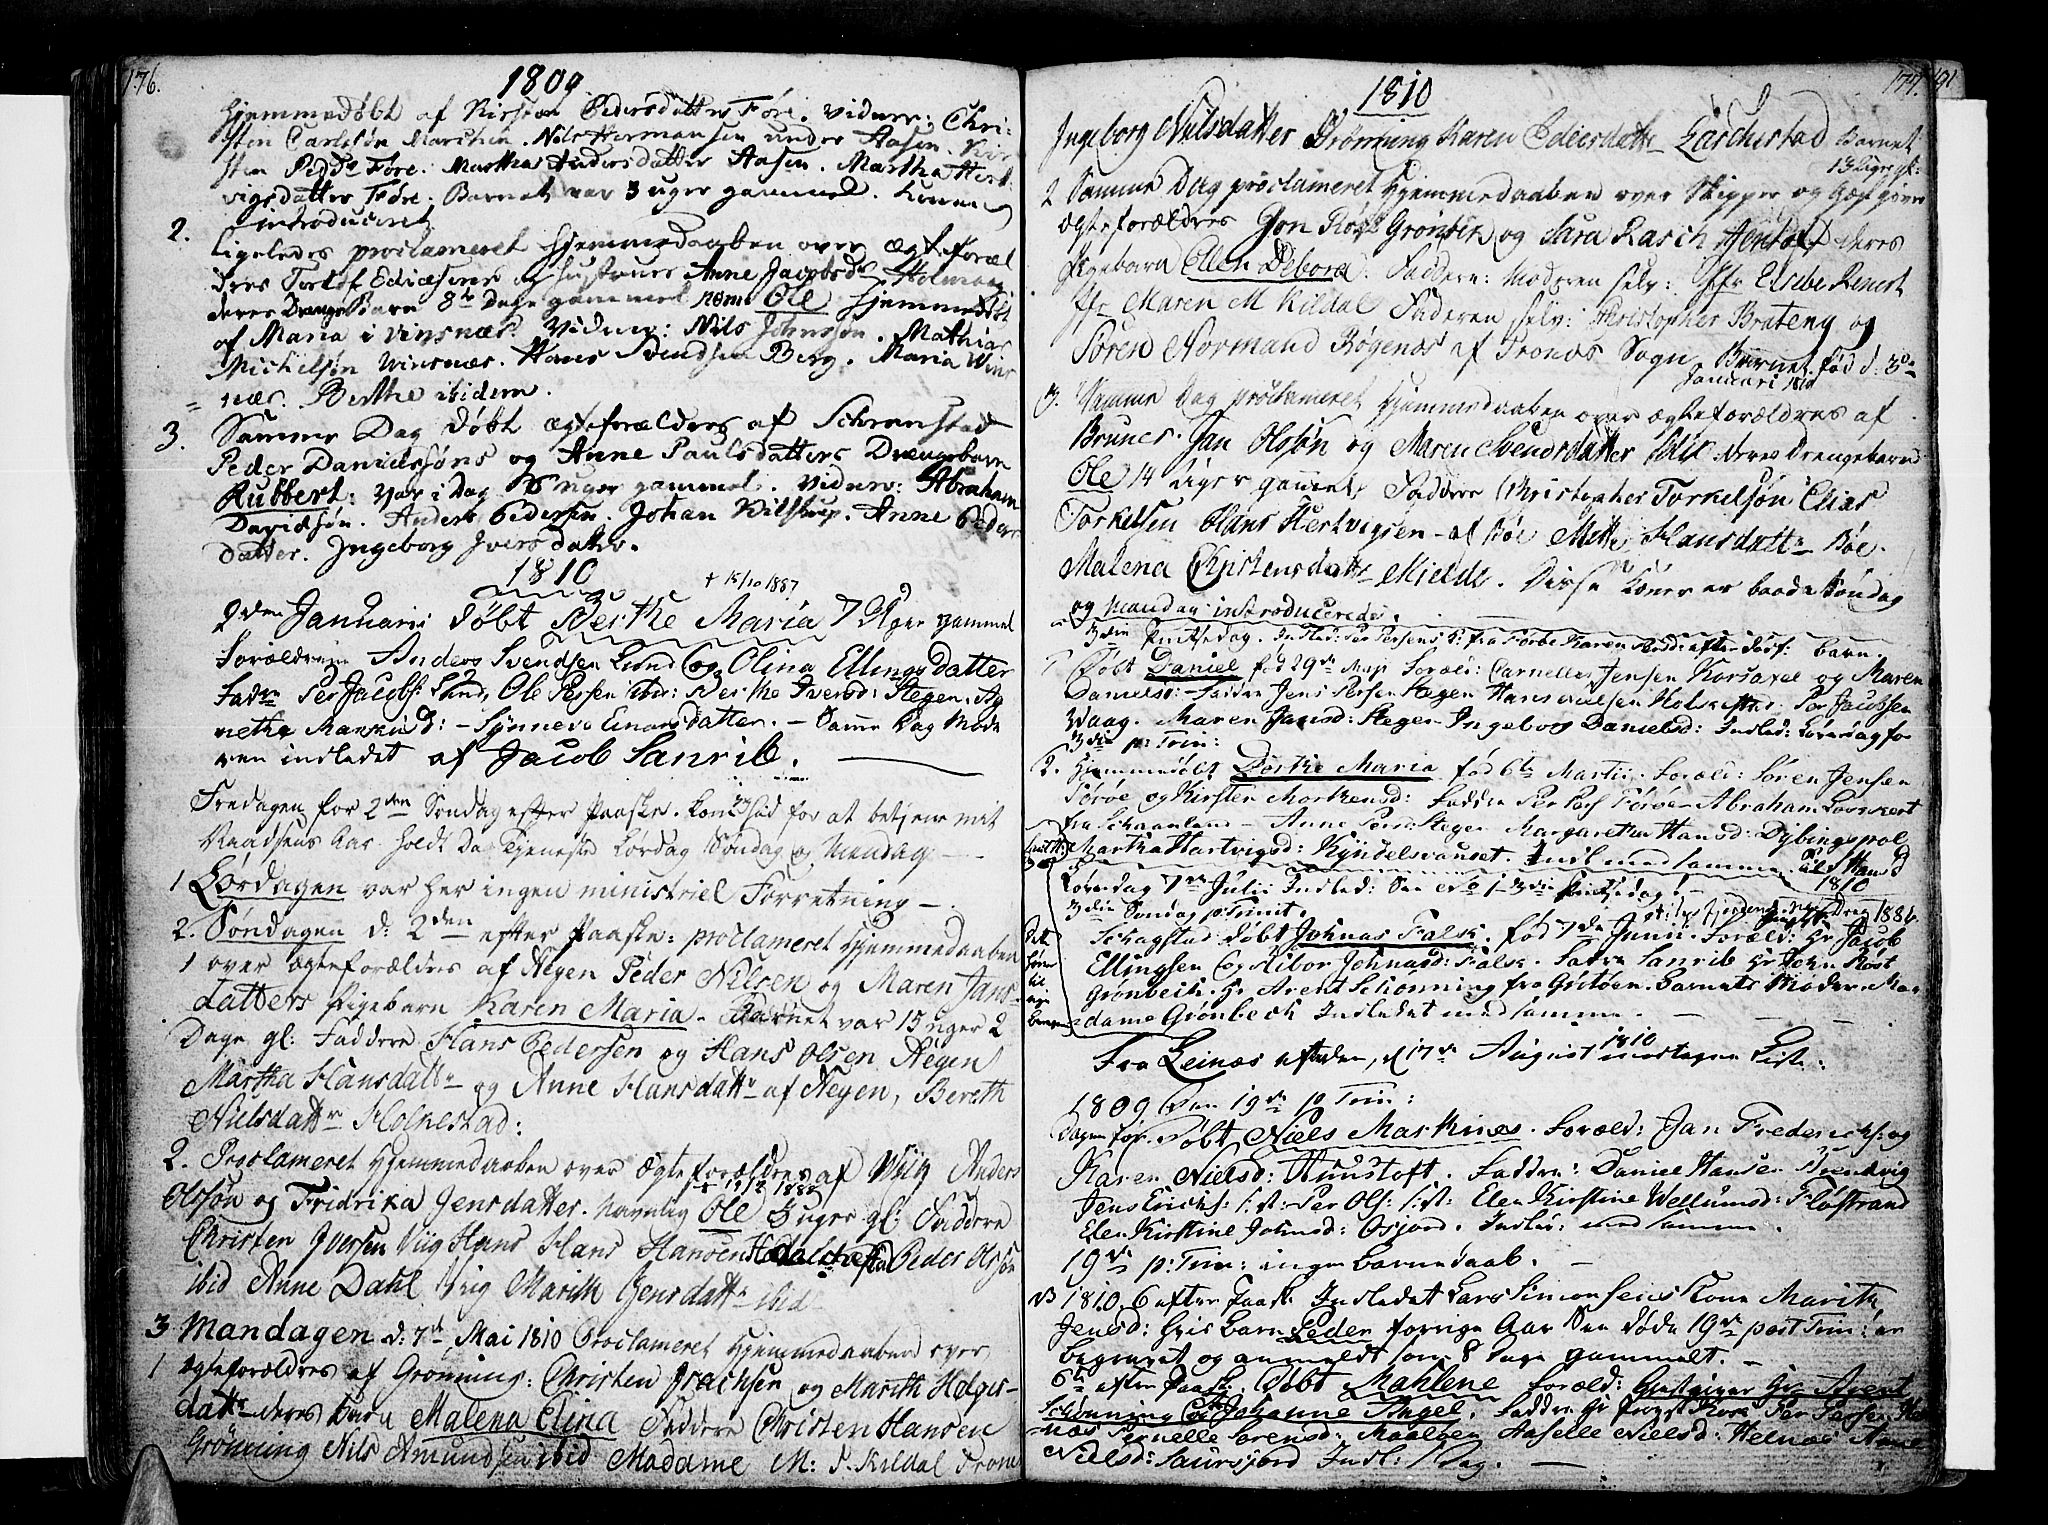 176.
1809
Hjemmedøbt af Kirsten Pedersdatter Føre. Vidner: Chri-
sten Carlsøn Marchin. Nils Hermansen under Aasen. Kir-
sten Pedd: Føre. Martha Andersdatter Aasen. Martha Hert-
vigsdatter Føre. Barnet var 3 uger gammel. Konen
introduceret
2. Ligeledes proclameret Hjemmedaaben over Ægteforæl
dres Tortof og Hustrues Anne Jacobsd: Holmvag
deres Drengebarn 8te Dage gammel nom: Ole Hjemmedøbt
af Maria i Vinsnæs. Vidner: Nils Johnssøn. Mathias
Michelsøn Vinsnæs. Hans Svendsen Berg. Maria Vins
næs. Berthe ibidem.
3. Samme Dag døbt Ægteforældres af Schranstad
Peder Danielssøns og Anne Paulsdatters Drengebarn
Rubbert: var i Dag uger gammel. Vidner: Abraham
Davidsøn. Anders Pedersen. Johan Kilstrup. Anne Peders
datter. Ingeborg Iversdatter.
1810
+ 15/10 1887
2den Januarii døbt Berthe Maria 7 Uger gammel
Forældrene Anders Svendsen Lund og Olina Ellingsdatter
Faddr Per Jacobs: Lund, Ole Persen ibid: Berthe Iversd: Stegen. Ag
nethe Markusd: - Synneve Enarsdatter. - Samme Dag Mode
ren indledet af Jacob Sanrib.
Fredagen for 2den Søndag efter Paaske. kom for at betjene mit
Vaadsens Aar. holdt Da Tjeneste Lørdag Søndag og Mandag -
1 Lørdagen var her ingen ministriel Forretning -.
2. Søndagen d: 2den efter Paaske: proclameret Hjemmedaaben
1 over Ægteforældres af Negen Peder Nilsen og Maren Jans-
datters Pigebarn Karen Maria. Barnet var 15 uger 2
Dage gl: Faddere Hans Pedersen og Hans Olsen Negen
Martha Hansdattr og Anne Hansdattr af Negen, Bereth
Nielsdattr Holkestad:
2. Proclameret Hjemmedaaben over Ægteforældres af Viig Anders
Olsøn og Fridrika Jensdatter. navnlig Ole 3 uger gl: Faddere
Christen Iversen Viig Hans Hans Hansen Peder Olssøn
ibid Anne Dahl Viig Marith Jensdattr ibid
3 Mandagen d: 7de Mai 1810 Proclameret Hjemmedaaben over
1 Ægteforældres af Grønning: Christen Isachsen og Marith Holgers-
dattr deres Barn Malena Elina Faddere Christen Hansen
Grønning Nils Amundsen ibid Madame M: P. Kildal Trones
177. 191
1810
Ingeborg Nilsdatter Grønning Karen Pedersdattr Larchestad Barnet
13 Uger gl:
2 Samme Dag proclameret Hjemmedaaben over Skipper og Gæstgiver
Ægteforældres Jon Røst Grønbek og Sara Rasch deres
Pigebarn Ellen Debora. Faddere: Moderen selv: Jfr Elsebe Renst
Jfr Maren M Kildal Faderen selv: Christopher Brateng og
Søren Normand Røgenæs af Tronæs Sogn Barnet fød d: 3de
Januari 1810
3. Samme Dag proclameret Hjemmedaaben over Ægteforældres af
Brunes. Jan Olssøn og Maren Svendsdatter deres Drengebarn
Ole 14 Uger gammel, Faddere Christopher Torkelsøn Elias
Torkelsen Hans Hertvigsen - af Bøe Mette Hansdattr Bøe.
Malena Christensdattr Mielde. Disse Koner er baade Søndag
og Mandag introducerede.
3die Pintsedag. Indled: Per Persens K: fra Førøe Karen efter Barn.
1 Døbt Daniel fød 29de Maji Foræld: Carnelles Jensen Korsavel og Maren
Danielsd: Faddere Jens Persen Stegen Hans Holkestad Per Jacobsen
Vaag. Maren Jansd: Stegen Ingeborg Danielsd: Indled: Løverdag fo
3die p: Trin:
2. Hjemmedøbt Dorthe Maria fød 6te Martii. Foræld: Søren Jensen
Førøe og Kirsten Morkensd: Faddre Per Pers Førøe Abraham
fra Schaanland - Anne Persd: Stegen Margarethe Hansd: Dybingspol
Martha Hartvigsd: Kyndelsvauset. Indl med samme
1810
Løverdag 7de Julii Indled: Sara 3die Pintsedag.
3die Søndag p: Trinit.
1886
Schagstad døbt Johnas Falsk. fød 7de Junii. Foræld: Hr Jacob
Ellingsen og Johnasd: Falsk. Faddre Sanrib Hr John Røst
Grønbeck. Hr Arent Schonning fra Grøtøen. Barnets Moder. Ma-
dame Grønbech Indledet med samme.
Fra Leinæs efter den, d 17de August 1810 modtagne Liste:
1809 Den 19de p Trin:
Dagen før døbt Niels Markines. Foræld: Jan Fredericks: og
Karen Nielsd: Hunstoft. Faddere: Daniel Hansen Strendvig
Jens Erichs: ist: Per Ols: ist: Elen Kirstine Wellumsd: Fløstrand
Elen Kirstine Johnsd: Osjord. Indled: med samme.
19de p: Trin: ingen Barnedaab. -
NB 1810. 6 efter Paask: Indledet Lars Simonsens Kone Marith
Jensd: hvis Barn Peder forrige Aar den døde 19de post Trin: er
begravet og anmeldt som 8 Dage gammelt. -
6te efter Paask: døbt Mahlene Foræld: Gæstgiver Hr Arent
Schonning og Johanne Angel. Faddre Hr Provst Per Persen Hel
næs Pernelle Sørensd: Maaløen Aaselle Nielsd: Helnæs Anne
Nielsd: Laursjord Indl: s: Dag. -